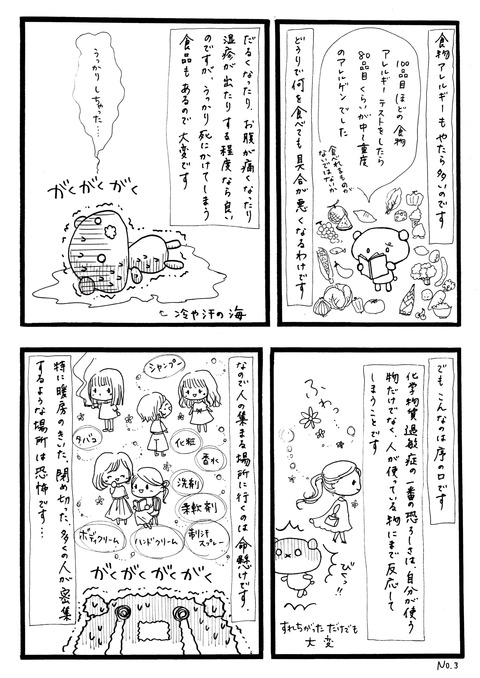 食物アレルギーもやたら多いのです
100品目ほどの食物
アレルギーテストをしたら
80品目くらいが中〜重度
のアレルゲンでした
食べれるものが
ないではないか
どうりで何を食べても具合が悪くなるわけです
だるくなったり、お腹が痛くなったり
湿疹が出たりする程度なら良い
のですが、うっかり死にかけてしまう
食品もあるので大変です
うっかりしちゃった…
がくがくがく
←冷や汗の海
でもこんなのは序の口です
化学物質過敏症の一番の恐ろしさは、自分が使う
物だけでなく、人が使っている物にまで反応して
しまうことです
ふわっ
びくっ!!
すれちがっただけでも
大変
なので人の集まる場所に行くのは命懸けです。
シャンプー
タバコ
化粧
香水
洗剤
柔軟剤
ボディクリーム
ハンドクリーム
制汗
スプレー
がくがくがくがく
特に暖房のきいた、閉め切った、多くの人が密集
するような場所は恐怖です…
No.3